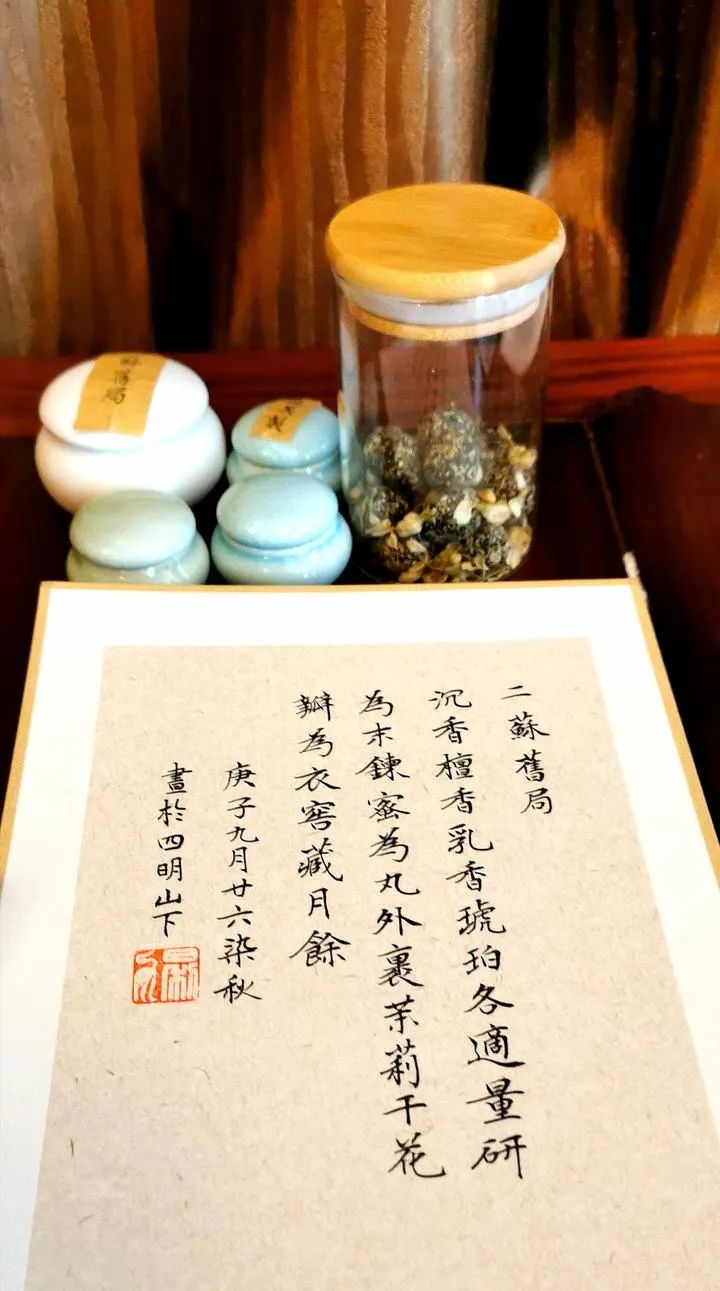 二蘇舊局
沉香檀香乳香琥珀各適量研
為末鍊蜜為丸外裹茉莉干花
瓣為衣窖藏月餘
庚子九月廿六染秋
晝於四明山下
舊局